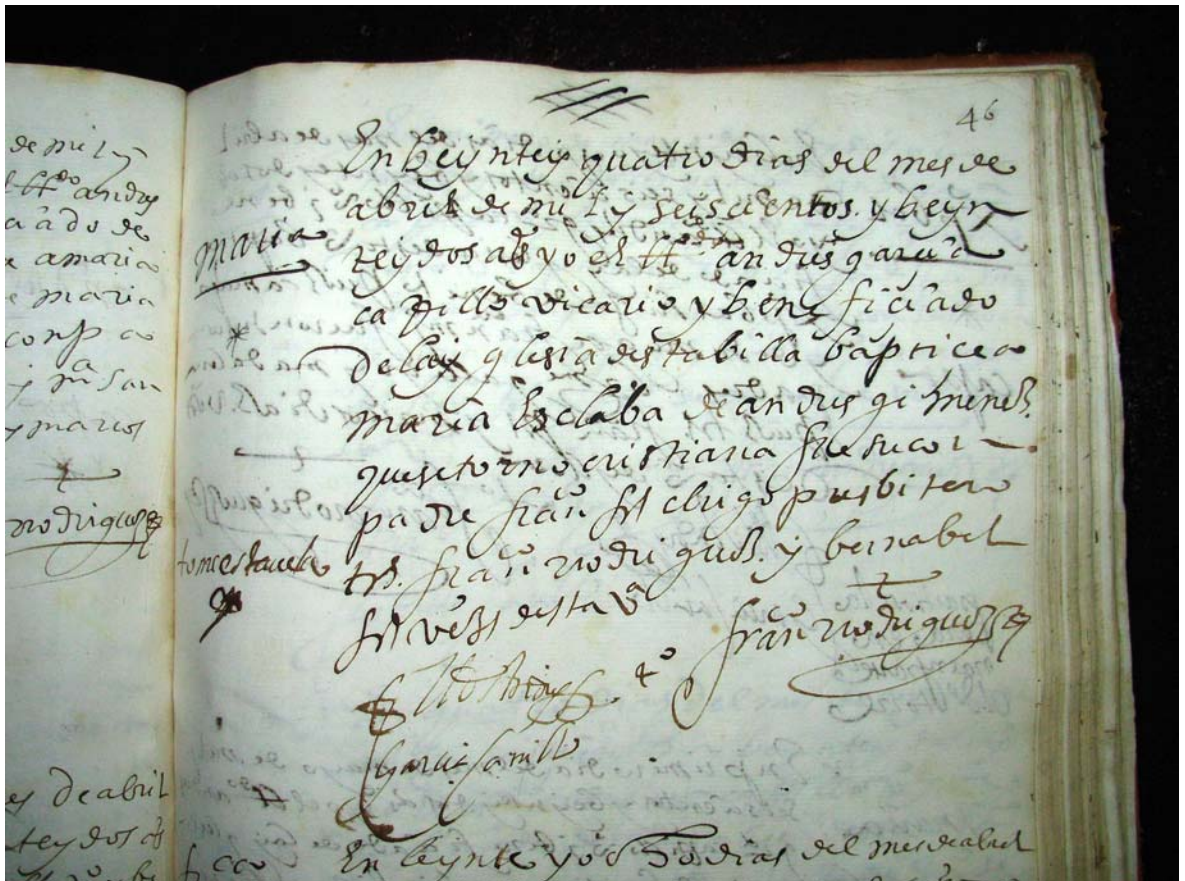 de mil y
ll.do andres
amaria
maria
conp a
y jn.a San
y marcos
rrodriguez
es de abril
tey dos as
46
En beyntey quatro dias del mes de
abril de mil y seiscientos y beyn
teydos as yo el ll.do andres garcia
capillo vicario y beneficiado
de lay glesia desta billa baptice a
maria Esclaba de andres gimenez
quesetorno cristiana fue su con
padre fran.co frs clerigo presbitero
tts. fran.co rrodriguez. y bernabel
frs vezs desta va
maria
fran.co rrodriguez
Garcia
En beynte yocho dias del mes de abril